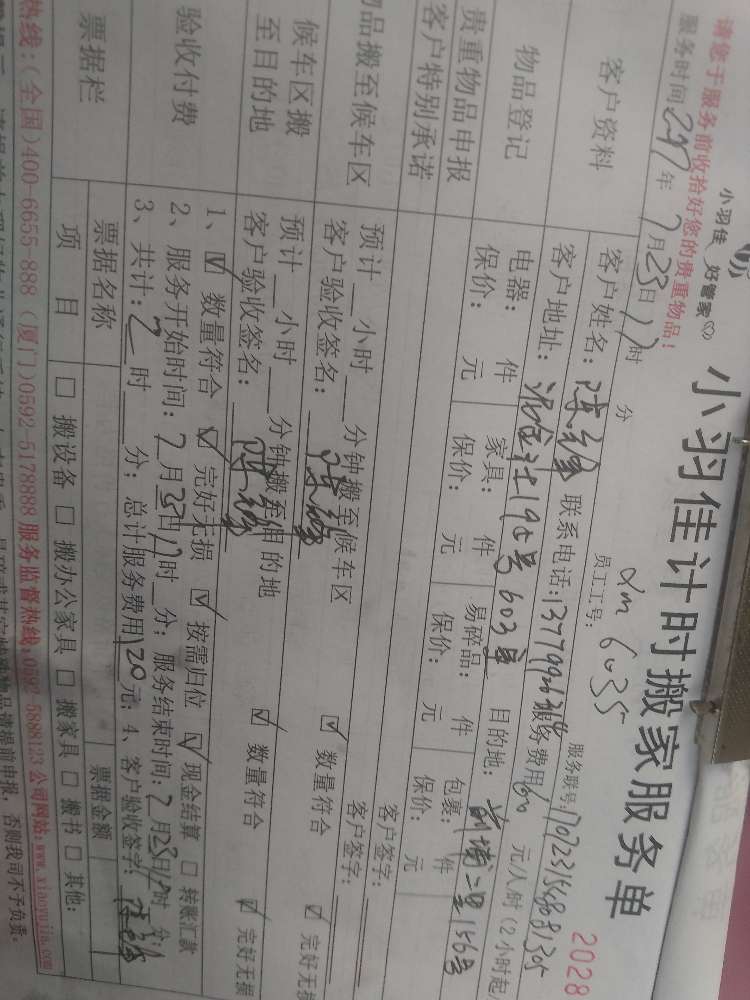 小羽佳 好管家
小羽佳计时搬家服务单
2028
请您于服务前收拾好您的贵重物品！
员工工号：xm 6035
服务时间：2017年7月23日17时 分
服务联号：
客户资料
客户姓名：陈 联系电话： 服务费用60元/人/时（2小时起
客户地址： 603 目的地： 前埔二里156号
物品登记
电器： 件 家具： 件 易碎品： 件 包裹： 件
保价： 元 保价： 元 保价： 元 保价： 元
贵重物品申报
客户特别承诺
客户签字：
客户签字：
物品搬至候车区
预计 小时 分钟搬至候车区 ☑ 数量符合 ☑ 完好无损
客户验收签名：陈
候车区搬至目的地
预计 小时 分钟搬至目的地 ☑ 数量符合 ☑ 完好无损
客户验收签名：陈
验收付费
1、☑ 数量符合 ☑ 完好无损 ☑ 按需归位 ☑ 现金结算 □ 转账汇款
2、服务开始时间：7月23日17时 分；服务结束时间：7月23日 时 分；
3、共计：2时 分；总计服务费用120元；4、客户验收签字：陈
票据栏
票据名称 票据金额
项 目 □ 搬设备 □ 搬办公家具 □ 搬家具 □ 搬书 □ 其他：
热线：（全国）400-6655-888（厦门）0592-5178888 服务监督热线：0592-5888123 公司网站：www.xiaoyujia.com
物品请提前申报，否则我司不予负责。